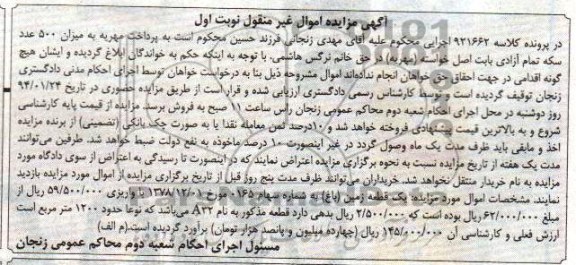 آگهی مزایده اموال غیر منقول نوبت اول
در پرونده کلاسه ۹۲۱۶۶۲ اجرایی محکوم علیه آقای مهدی زنجانی فرزند حسین محکوم است به پرداخت مهریه به میزان ۵۰۰ عدد
سکه تمام آزادی بابت اصل خواسته (مهریه) در حق خانم نرگس هاشمی. با توجه به اینکه حکم به خواندگان ابلاغ گردیده و ایشان هیچ
گونه اقدامی در جهت احقاق حق خواهان انجام نداده‌اند اموال مشروحه ذیل بنا به درخواست خواهان توسط اجرای احکام مدنی دادگستری
زنجان توقیف گردیده است و توسط کارشناس رسمی دادگستری ارزیابی شده و قرار است از طریق مزایده حضوری در تاریخ ۹۴/۰۱/۲۴
روز دوشنبه در محل اجرای احکام شعبه دوم محاکم عمومی زنجان راس ساعت ۱۱ صبح به فروش برسد. مزایده از قیمت پایه کارشناسی
شروع و به بالاترین قیمت پیشنهادی فروخته خواهد شد و ۱۰درصد ثمن معامله نقدا یا به صورت چک بانکی (تضمینی) از برنده مزایده
اخذ و مابقی باید ظرف مدت یک ماه وصول گردد در غیر اینصورت ۱۰ درصد ماخوذه به نفع دولت ضبط خواهد شد. طرفین می‌توانند
مدت یک هفته از تاریخ مزایده نسبت به نحوه برگزاری مزایده اعتراض نمایند که در اینصورت تا رسیدگی به اعتراض از سوی دادگاه مورد
مزایده به نام خریدار منتقل نخواهد شد. خریداران می‌توانند ظرف مدت پنج روز قبل از تاریخ برگزاری مزایده از اموال مورد مزایده بازدید
نمایند. مشخصات اموال مورد مزایده: یک قطعه زمین (باغ) به شماره سهام ۰۱۶۵ مورخ ۱۳۷۸/۱۲/۰۱ با واریزی ۵۹/۵۰۰/۰۰۰ ریال از
مبلغ ۶۲/۰۰۰/۰۰۰ ریال بوده است که ۲/۵۰۰/۰۰۰ ریال بدهی دارد قطعه مذکور به نام A۳۲ می‌باشد که نوعا حدود ۱۲۰۰ متر مربع است
ارزش فعلی و کارشناسی آن ۱۴۵/۰۰۰/۰۰۰ ریال (چهارده میلیون و پانصد هزار تومان) برآورد گردیده است.(م الف)
مسئول اجرای احکام شعبه دوم محاکم عمومی زنجان